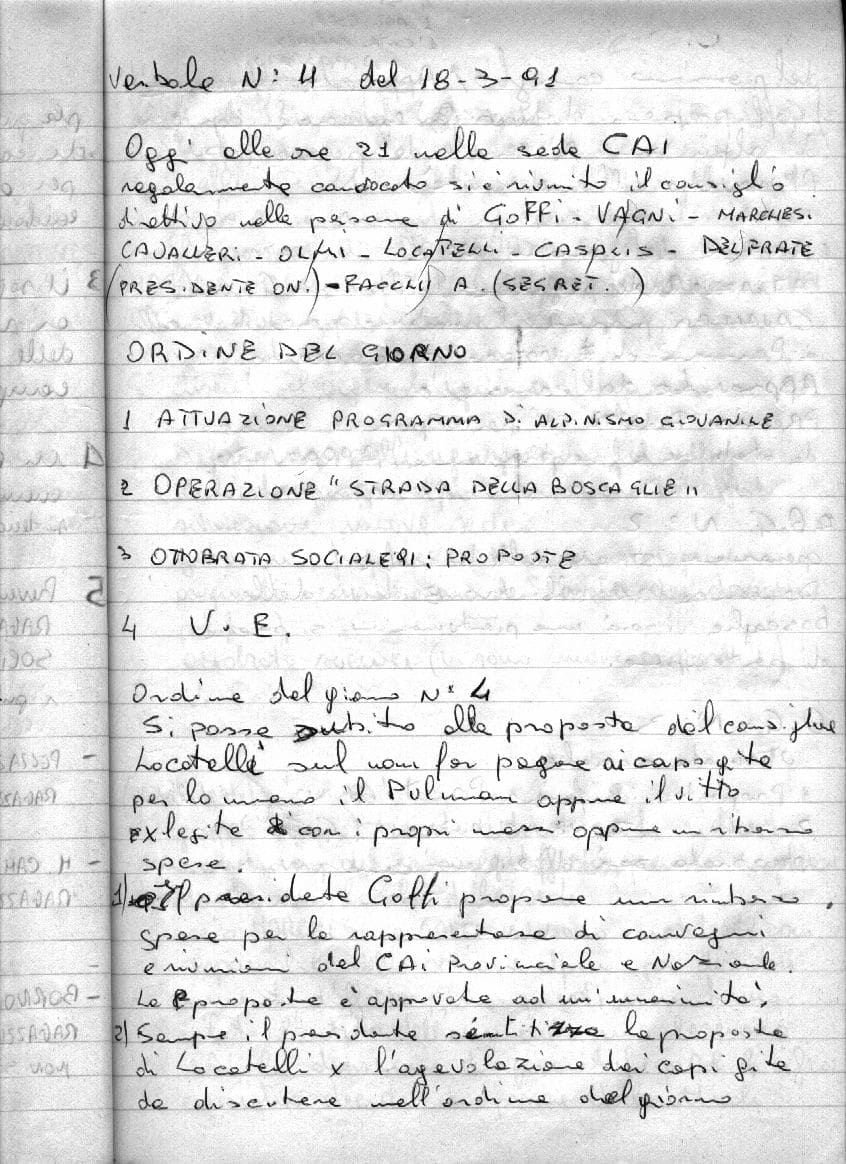 Verbale N: 4 del 18-3-91
Oggi alle ore 21 nella sede CAI
regolarmente condocato si è riunito il consiglio
direttivo nelle persone di GOFFI - VAGNI - MARCHESI
CAVALLERI - OLMI - LOCATELLI - CASPLIS - DELFRATE
(PRESIDENTE ON.) - FACCHI A. (SEGRET.)
ORDINE DEL GIORNO
1 ATTUAZIONE PROGRAMMA DI ALPINISMO GIOVANILE
2 OPERAZIONE "STRADA DELLA BOSCAGLIE"
3 OTTOBRATA SOCIALE 91: PROPOSTE
4 V. E.
Ordine del giorno N: 4
Si passa subito alla proposta del consigliere
Locatelli sul non far pagare ai capo gite
per lo meno il Pulman oppure il vitto
x le gite con i propri mezzi oppure un rimborso
spese.
1) Il presidente Goffi propone un rimborso
spese per la rappresentanza di convegni
e riunioni del CAI Provinciale e Nazionale.
La proposta è approvata ad un'unanimità.
2) Sempre il presidente la proposta
di Locatelli x l'agevolazione dei capi gite
da discutere nell'ordine del giorno